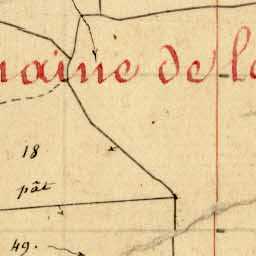 maine de la
18
pât
49.